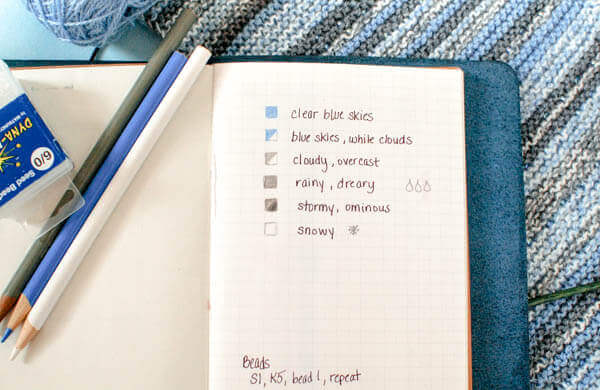 clear blue skies
blue skies, white clouds
cloudy, overcast
rainy, dreary
stormy, ominous
snowy
Beads
S1, K5, bead 1, repeat
DYNA-
6/0
Seed Bead